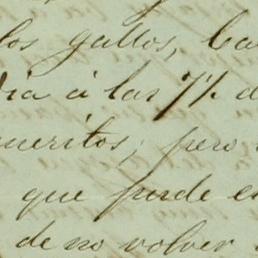 los gallos, ba
dia á las 7½ d
ueritos; pero
que puede e
de no volver